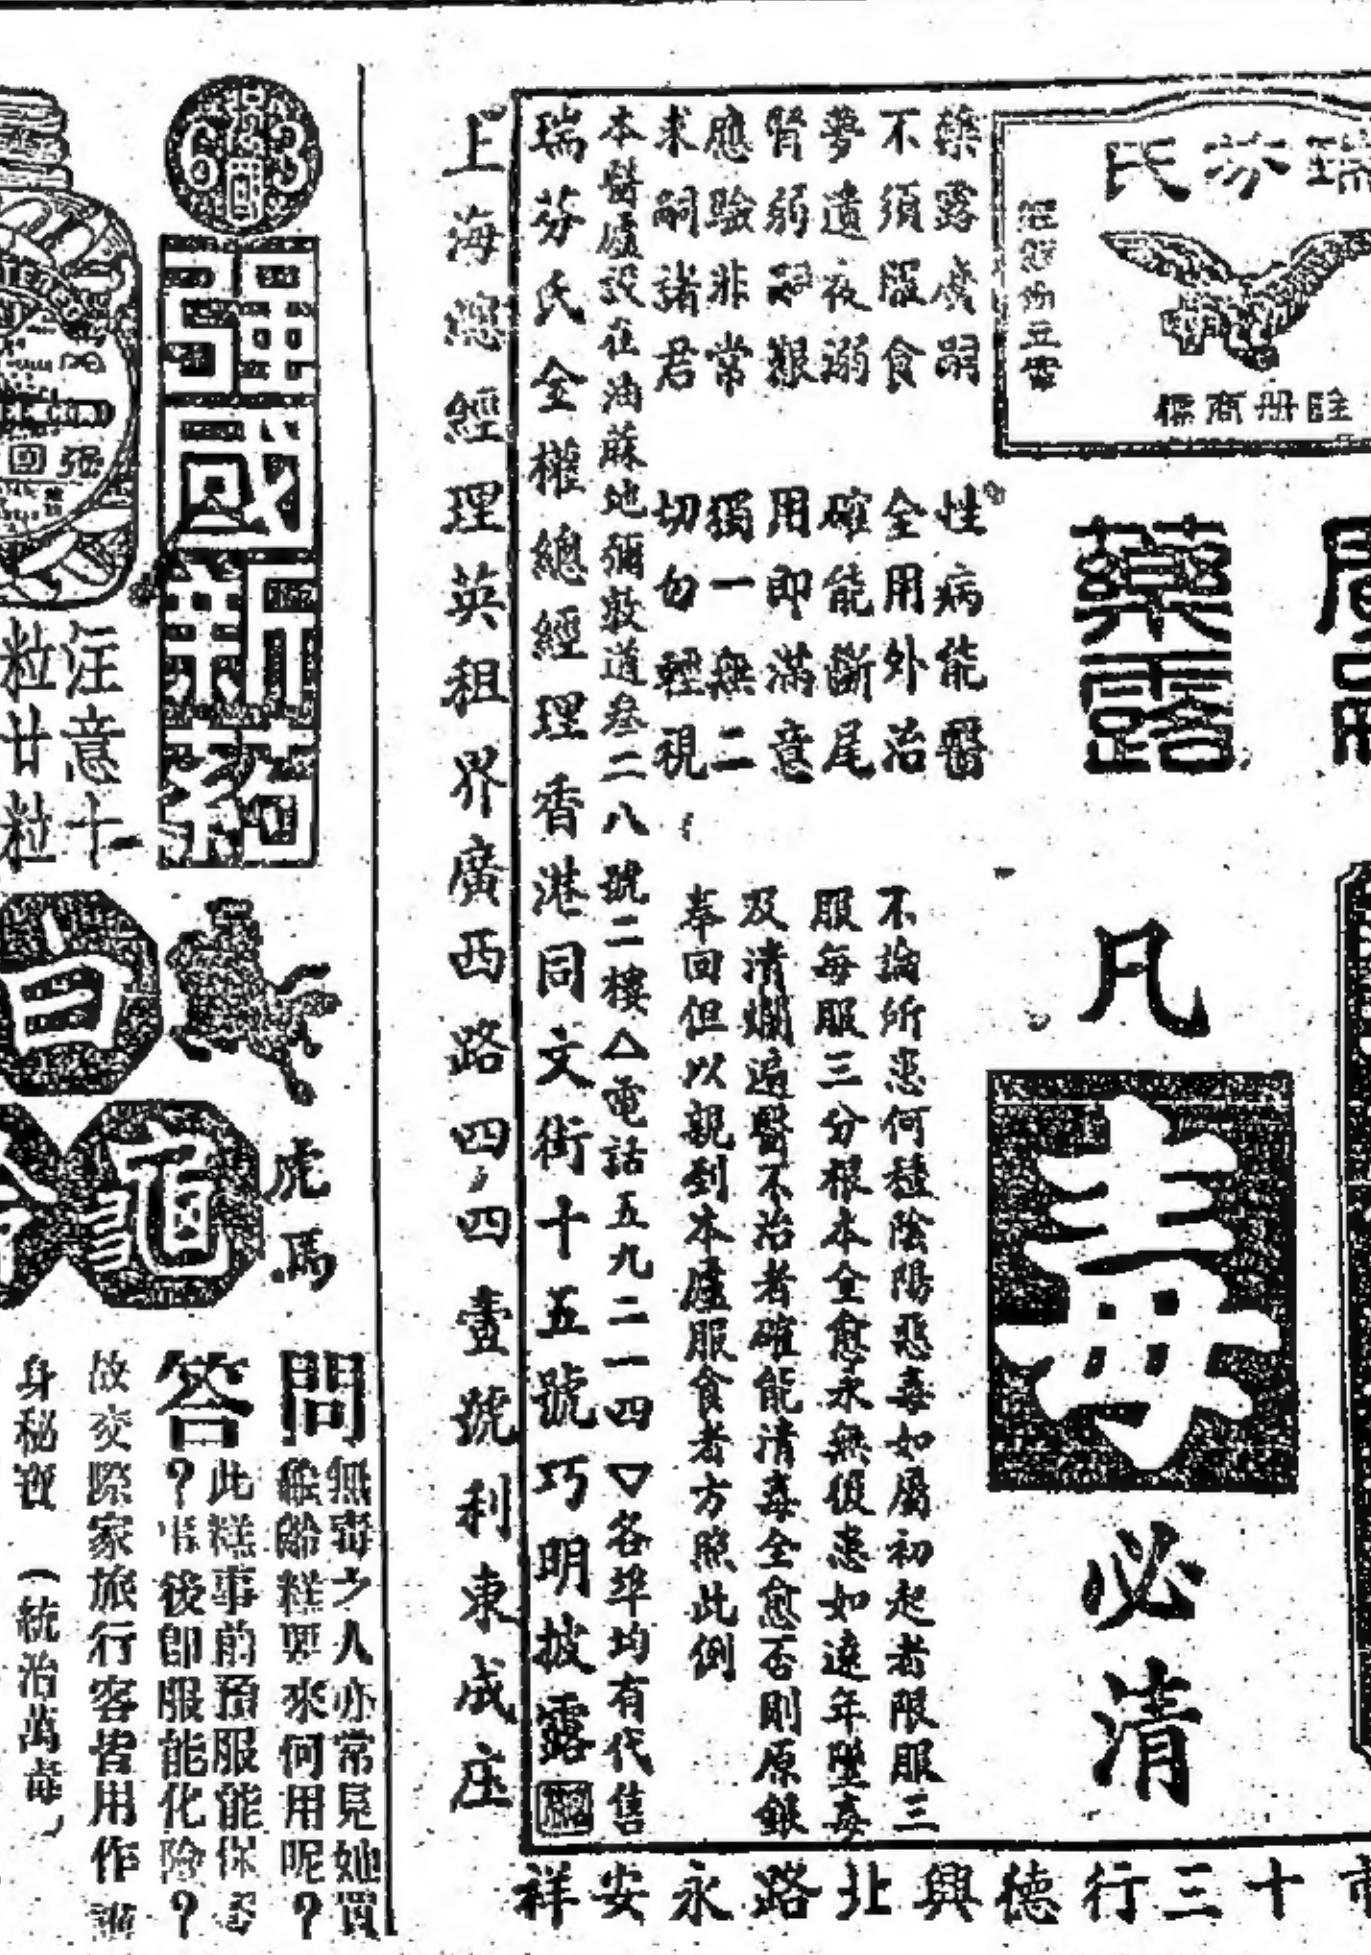 瑞芬氏
註册商標
藥露
凡
毒
必清
藥露處嗣
不須服食
夢遺夜溺
腎弱艱
應驗非常
求嗣諸君
性病能醫
全用外治
確能斷尾
用即滿意
獨一無二
切勿輕視
不論所患何種陰陽惡毒如屬初起者限服三
服每服三分根本全愈永無後患如遠年墜毒
及清爛遍醫不治者確能清毒全愈否則原銀
奉回但以親到本廬服食者方照此例
本醫廬設在油蔴地彌敦道叁二八號二樓△電話五九二一四▽各埠均有代售
瑞芬氏全權總經理香港同文街十五號巧明披露
上海總經理英租界廣西路四四壹號利東成座
十三行德興北路永安祥
63
强國新葯
注意十
粒廿粒
白
龜
虎馬
問
無毒之人亦常見她買
龜齡糕要來何用呢?
答
此糕事前預服能保
?事後即服能化險?
故交際家旅行客皆用作
身秘寶(統治萬毒)